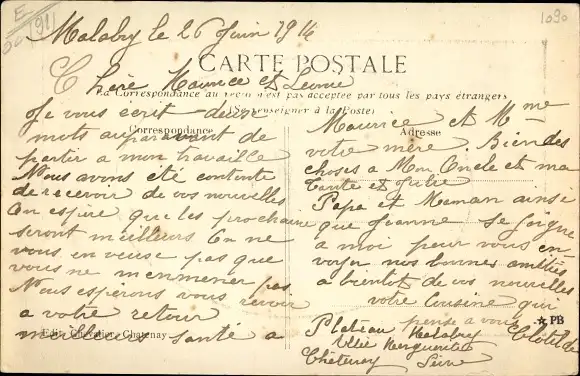 E
(91)
1090
Malabry le 26 Juin 1914
CARTE POSTALE
Chère Maurice et Leonie
La Correspondance au recto n'est pas acceptée par tous les pays étrangers
(Se renseigner à la Poste)
Correspondance
Je vous écrit deux
mots auparavant de
partir a mon travaille
Nous avons été contente
de recevoir de vos nouvelles
On espire que les prochaine
seront meilleurs On ne
vous en veuse pas que
vous ne m'enmener pas
Nous espérons vous revoir
a votre retour
meilleures santé a
Edit. Chevalier, Chatenay
Adresse
Maurice et Mme
votre mère. Bien des
choses a Mon Oncle et ma
tante et Julie
Papa et Maman ainsi
que Jeanne se joigne
a moi pour vous en
voyer nos bonnes amitiés
a bientot de vos nouvelles
votre cousine qui
pense a vous Clotilde
★ PB
Plateau Malabry
Ullie Marguerite
Chatenay Seine